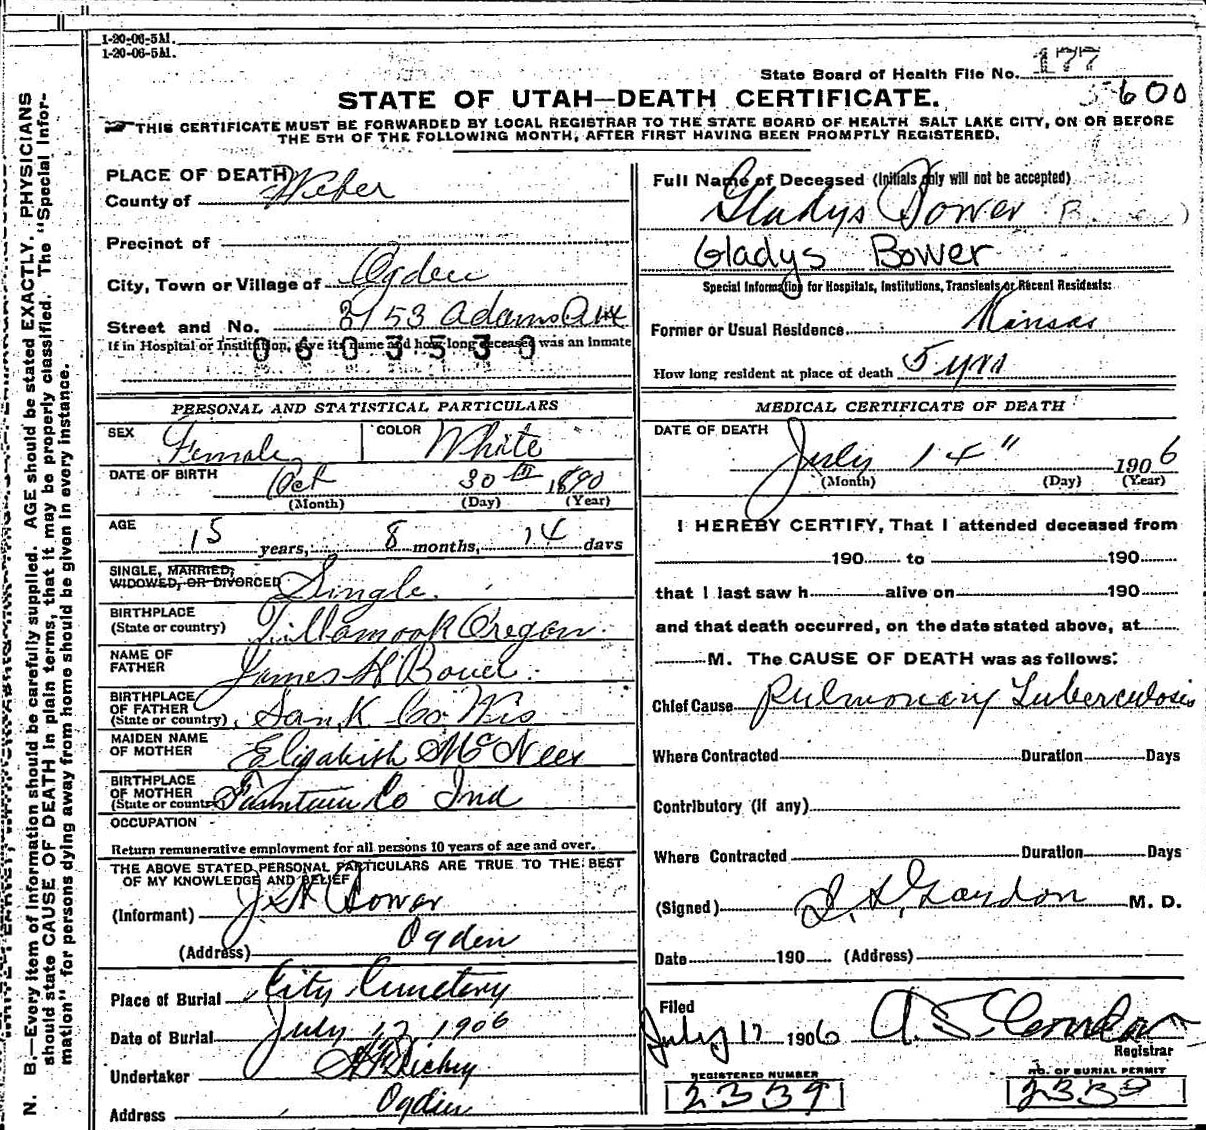 1-20-06-5M.
1-20-06-5M.
State Board of Health File No. 177
5600
STATE OF UTAH—DEATH CERTIFICATE.
THIS CERTIFICATE MUST BE FORWARDED BY LOCAL REGISTRAR TO THE STATE BOARD OF HEALTH SALT LAKE CITY, ON OR BEFORE
THE 5TH OF THE FOLLOWING MONTH, AFTER FIRST HAVING BEEN PROMPTLY REGISTERED.
N. B.—Every item of information should be carefully supplied. AGE should be stated EXACTLY. PHYSICIANS
should state CAUSE OF DEATH in plain terms, that it may be properly classified. The "Special Infor-
mation" for persons dying away from home should be given in every instance.
PLACE OF DEATH
County of Weber
Precinct of
City, Town or Village of Ogden
Street and No. 3153 Adams Ave
If in Hospital or Institution, give its name and how long deceased was an inmate
0603530
Full Name of Deceased (Initials only will not be accepted)
Gladys Bower
Gladys Bower
Special Information for Hospitals, Institutions, Transients or Recent Residents:
Former or Usual Residence Kansas
How long resident at place of death 5 yrs
PERSONAL AND STATISTICAL PARTICULARS
SEX Female COLOR White
DATE OF BIRTH Oct 30th 1890
(Month) (Day) (Year)
AGE 15 years, 8 months, 14 days
SINGLE, MARRIED,
WIDOWED, OR DIVORCED Single
BIRTHPLACE
(State or country) Tillamook Oregon
NAME OF
FATHER James H Bower
BIRTHPLACE
OF FATHER
(State or country) Sauk Co Wis
MAIDEN NAME
OF MOTHER Elizabeth McNeer
BIRTHPLACE
OF MOTHER
(State or country) Fountain Co Ind
OCCUPATION
Return remunerative employment for all persons 10 years of age and over.
THE ABOVE STATED PERSONAL PARTICULARS ARE TRUE TO THE BEST
OF MY KNOWLEDGE AND BELIEF
(Informant) J. H Bower
(Address) Ogden
Place of Burial City Cemetery
Date of Burial July 17 1906
Undertaker Richey
Address Ogden
MEDICAL CERTIFICATE OF DEATH
DATE OF DEATH
July 14" 1906
(Month) (Day) (Year)
I HEREBY CERTIFY, That I attended deceased from
190 to 190
that I last saw h alive on 190
and that death occurred, on the date stated above, at
M. The CAUSE OF DEATH was as follows:
Chief Cause Pulmonary Tuberculosis
Where Contracted Duration Days
Contributory (if any)
Where Contracted Duration Days
(Signed) Gordon M. D.
Date 190 (Address)
Filed
July 17 1906
Registrar
REGISTERED NUMBER NO. OF BURIAL PERMIT
2339 2339